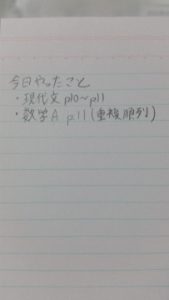 今日やったこと
・現代文 p10～p11
・数学A p.11(重複順列)